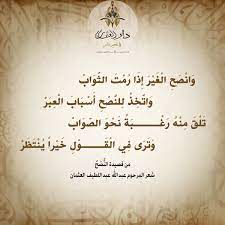 وَانْصَحِ الْغَيْرَ إِذَا رُمْتَ الثَّوَابْ
وَاتَّخِذْ لِلنُّصْحِ أَسْبَابَ الْعِبَرْ
تَلْقَ مِنْهُ رَغْبَةً نَحْوَ الصَّوَابْ
وَتَرَى فِي الْقَوْلِ خَيْراً يُنْتَظَرْ
من قصيدة النُّصْحُ
شعر المرحوم عبدالله عبد اللطيف العثمان